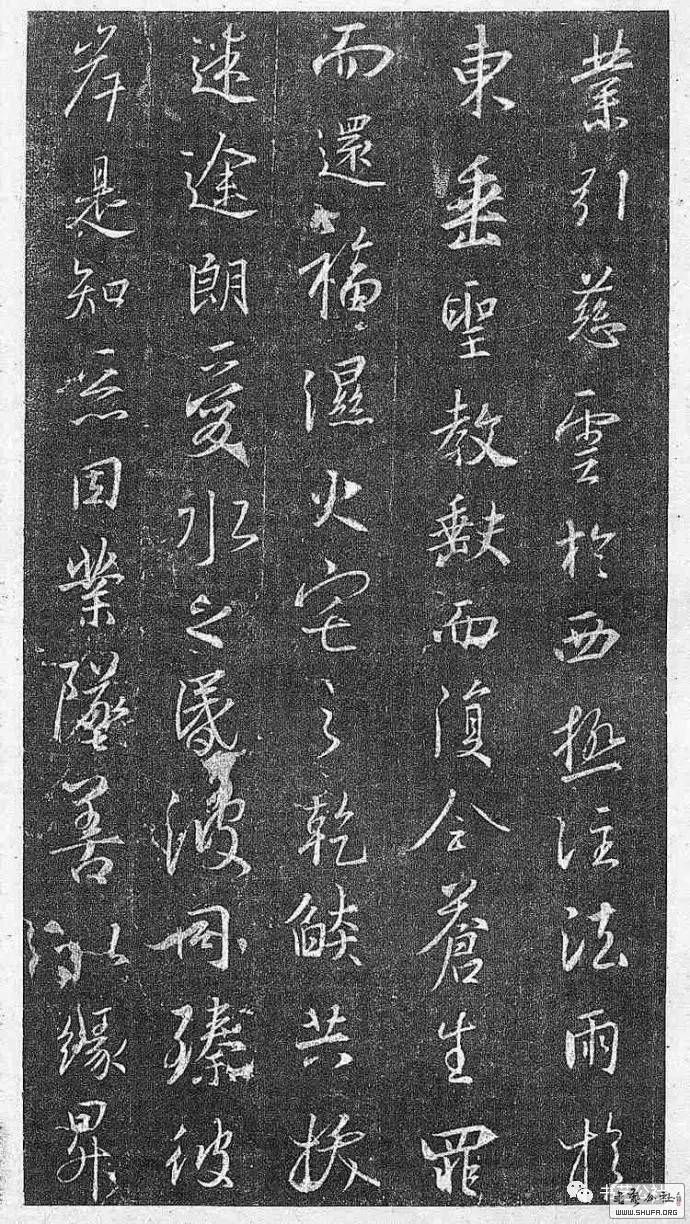 業引慈雲於西極注法雨於
東垂聖教缺而復全蒼生罪
而還福濕火宅之乾焰共拔
迷途朗愛水之昏波同臻彼
岸是知惡因業墜善以緣昇
WWW.SHUFA.ORG